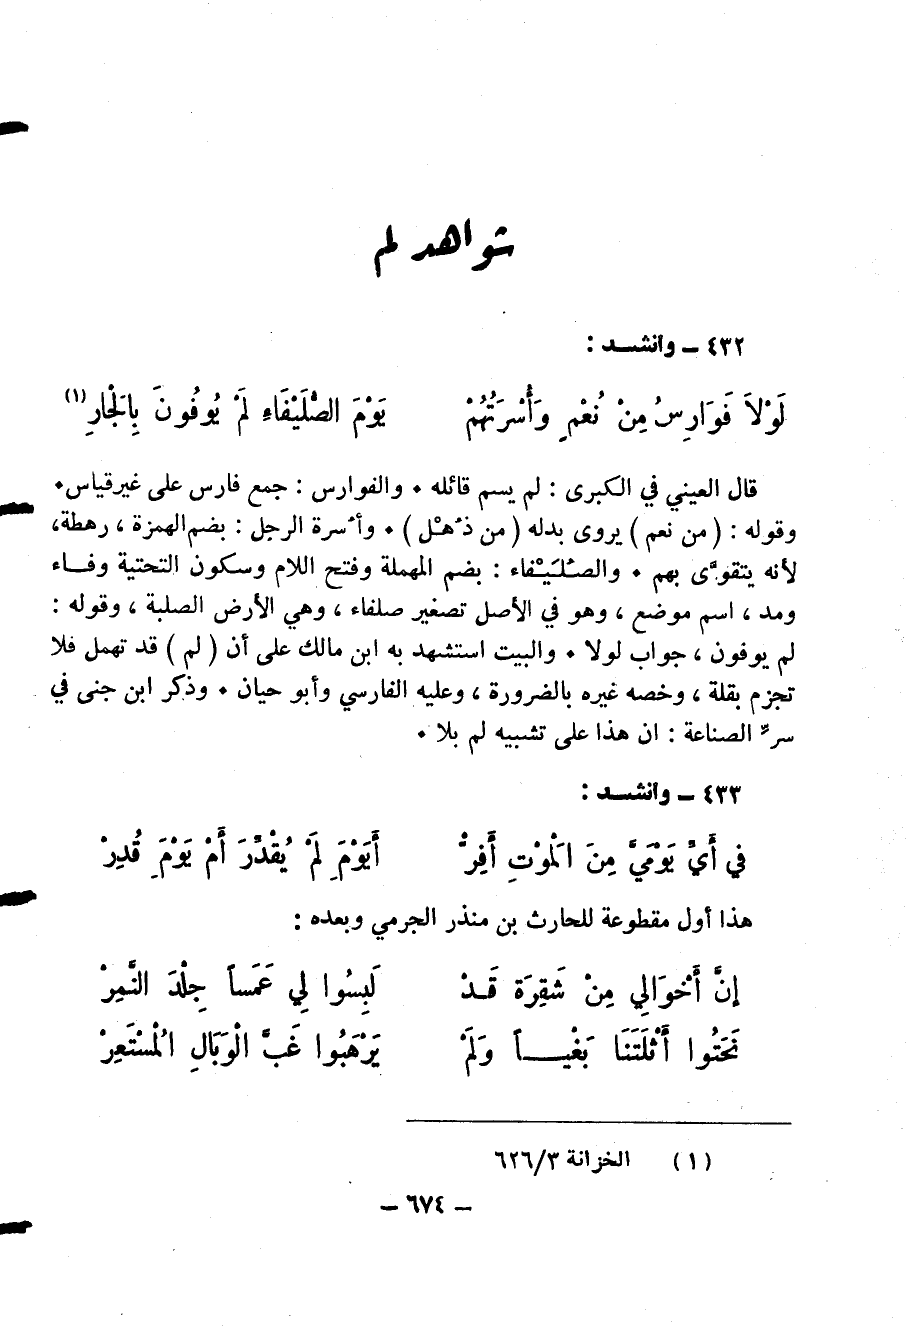 شواهد لم
٤٣٢ – وانشد :
لَوْلاَ فَوَارِسُ مِنْ نُعْمٍ وَأُسْرَتُهُمْ يَوْمَ الصُّلَيْفَاءِ لَمْ يُوفُونَ بِالْجَارِ (١)
قال العيني في الكبرى : لم يسم قائله • والفوارس : جمع فارس على غير قياس •
وقوله : ( من نعم ) يروى بدله ( من ذُهْل ) • وأُسرة الرجل : بضم الهمزة ، رهطة،
لأنه يتقوَّى بهم • والصُلَيْفاء : بضم المهملة وفتح اللام وسكون التحتية وفاء
ومد ، اسم موضع ، وهو في الأصل تصغير صلفاء ، وهي الأرض الصلبة ، وقوله :
لم يوفون ، جواب لولا • والبيت استشهد به ابن مالك على أن ( لم ) قد تهمل فلا
تجزم بقلة ، وخصه غيره بالضرورة ، وعليه الفارسي وأبو حيان • وذكر ابن جنى في
سرِّ الصناعة : ان هذا على تشبيه لم بلا •
٤٣٣ – وانشد :
في أَيِّ يَوْمَيَّ مِنَ الْمَوْتِ أَفِرّْ أَيَوْمَ لَمْ يُقْدَرَ أَمْ يَوْمَ قُدِرْ
هذا أول مقطوعة للحارث بن منذر الجرمي وبعده :
إنَّ أَخْوَالِي مِنْ شَقِرَة قَدْ لَبِسُوا لِي عَمَساً جِلْدَ النَّمِرْ
نَحَتُوا أَثْلَتَنَا بَغْياً وَلَمْ يَرْهَبُوا غَبَّ الْوَبَالِ الْمُسْتَعِرْ
(١) الخزانة ٦٢٦/٣
– ٦٧٤ –